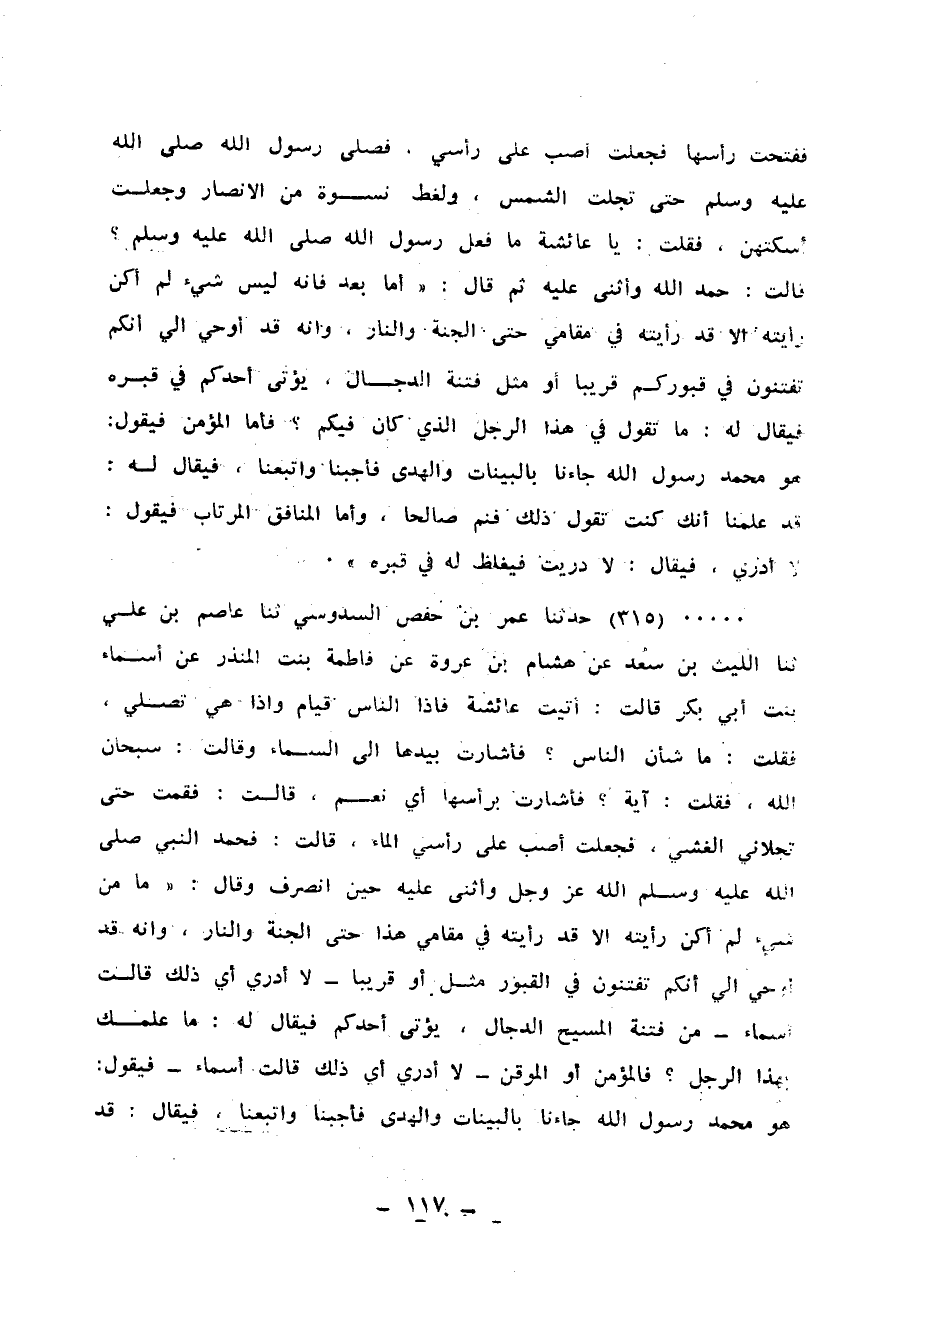 ففتحت رأسها فجعلت أصب على رأسي ، فصلى رسول الله صلى الله
عليه وسلم حتى تجلت الشمس ، ولغط نسوة من الانصار وجعلت
أسكتهن ، فقلت : يا عائشة ما فعل رسول الله صلى الله عليه وسلم ؟
قالت : حمد الله وأثنى عليه ثم قال : « أما بعد فانه ليس شيء لم أكن
رأيته الا قد رأيته في مقامي حتى الجنة والنار ، وانه قد أوحي الي أنكم
تفتنون في قبوركم قريبا أو مثل فتنة الدجال ، يؤتى أحدكم في قبره
فيقال له : ما تقول في هذا الرجل الذي كان فيكم ؟ فأما المؤمن فيقول:
هو محمد رسول الله جاءنا بالبينات والهدى فأجبنا واتبعنا ، فيقال له :
قد علمنا أنك كنت تقول ذلك فنم صالحا ، وأما المنافق المرتاب فيقول :
لا أدري ، فيقال : لا دريت فيغلظ له في قبره » .
..... (٣١٥) حدثنا عمر بن حفص السدوسي ثنا عاصم بن علي
ثنا الليث بن سعد عن هشام بن عروة عن فاطمة بنت المنذر عن أسماء
بنت أبي بكر قالت : أتيت عائشة فاذا الناس قيام واذا هي تصلي ،
فقلت : ما شأن الناس ؟ فأشارت بيدها الى السماء وقالت : سبحان
الله ، فقلت : آية ؟ فأشارت برأسها أي نعم ، قالت : فقمت حتى
تجلاني الغشي ، فجعلت أصب على رأسي الماء ، قالت : فحمد النبي صلى
الله عليه وسلم الله عز وجل وأثنى عليه حين انصرف وقال : « ما من
شيء لم أكن رأيته الا قد رأيته في مقامي هذا حتى الجنة والنار ، وانه قد
أوحي الي أنكم تفتنون في القبور مثل أو قريبا – لا أدري أي ذلك قالت
أسماء – من فتنة المسيح الدجال ، يؤتى أحدكم فيقال له : ما علمك
بهذا الرجل ؟ فالمؤمن أو الموقن – لا أدري أي ذلك قالت أسماء – فيقول:
هو محمد رسول الله جاءنا بالبينات والهدى فأجبنا واتبعنا ، فيقال : قد
– ١١٧ –